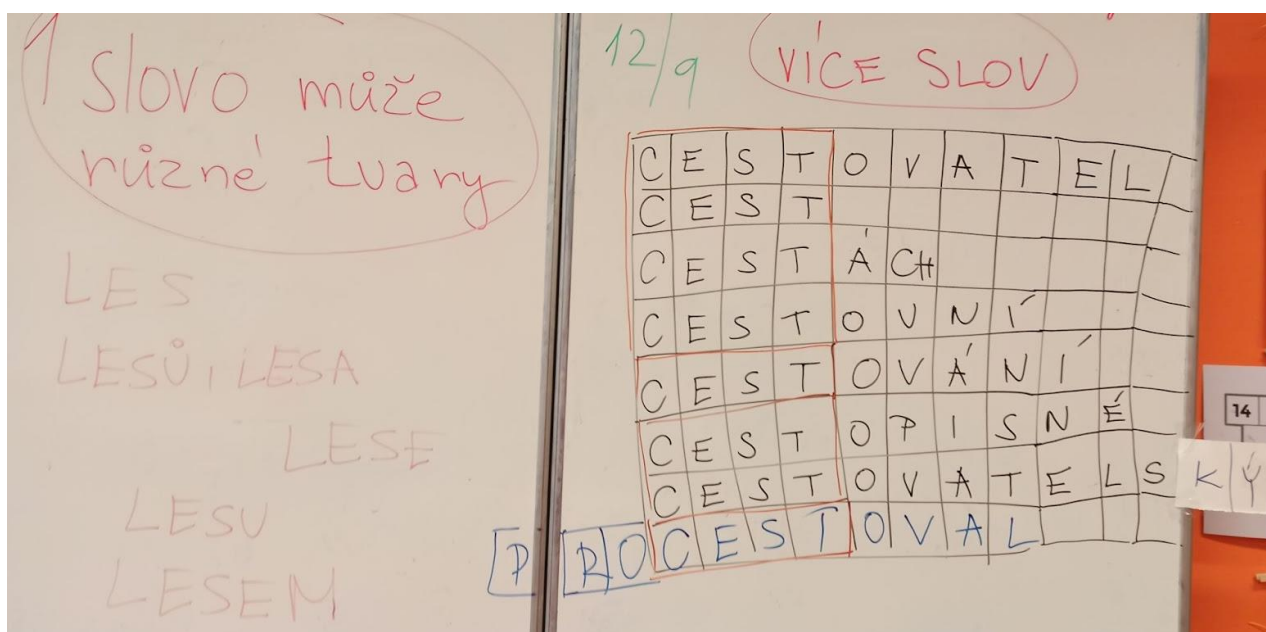 1 slovo může
různé tvary
LES
LESŮ, LESA
LESE
LESU
LESEM
12/9
VÍCE SLOV
CESTOVATEL
CEST
CESTÁCH
CESTOVNÍ
CESTOVÁNÍ
CESTOPISNÉ
CESTOVATELSKÝ
PROCESTOVAL
14